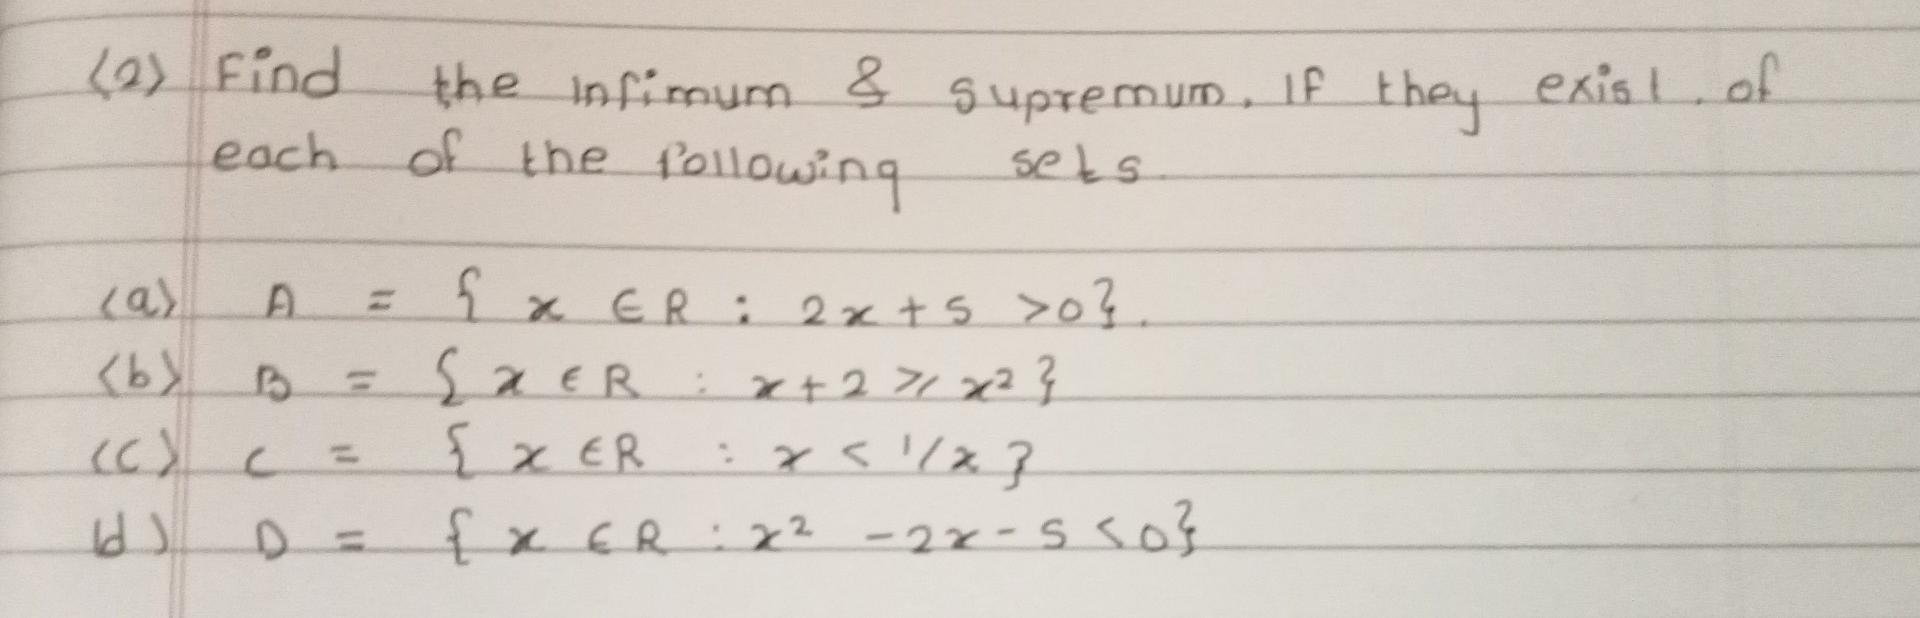 (2) Find the infimum & supremum, if they exist, of
each of the following sets.
(a) A = { x ∈ R : 2x + 5 > 0 }.
(b) B = { x ∈ R : x + 2 ≥ x² }
(c) C = { x ∈ R : x < 1/x }
(d) D = { x ∈ R : x² - 2x - 5 < 0 }